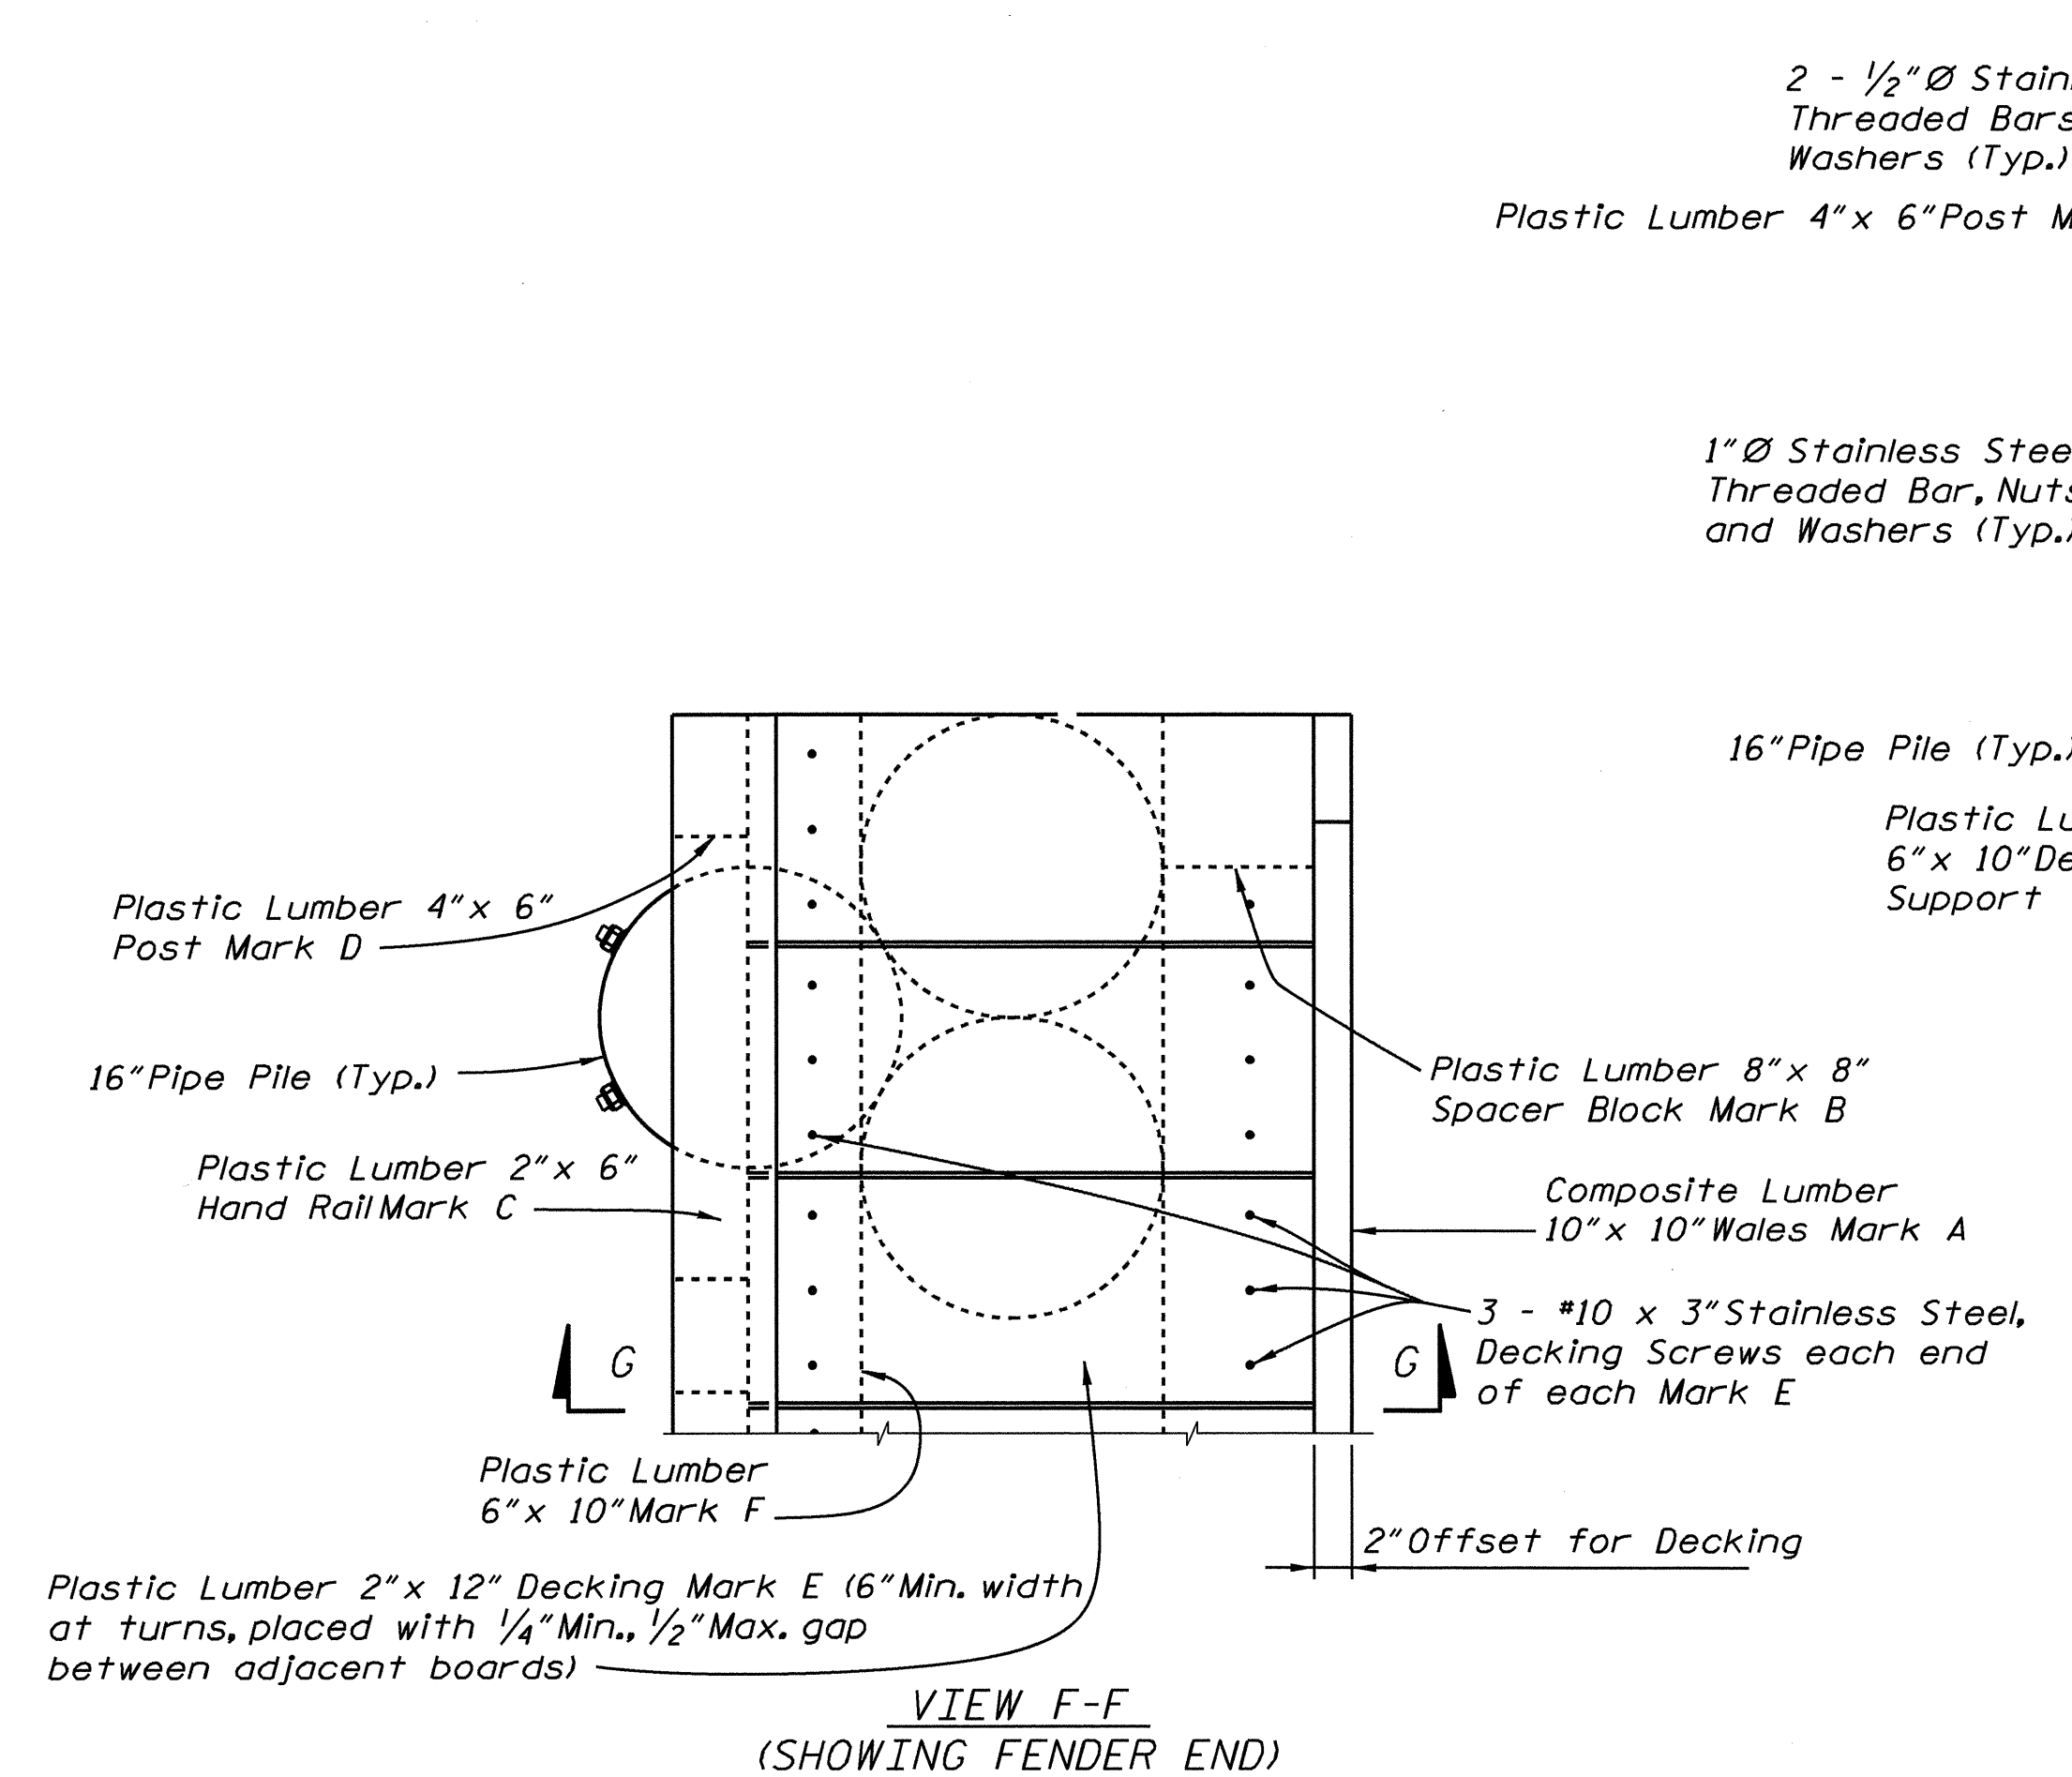 2 - 1/2"Ø
Threaded Bars
Washers (Typ.)
Plastic Lumber 4"x 6"Post
1"Ø Stainless
Threaded Bar,
and Washers (Typ.)
16"Pipe Pile (Typ.)
Plastic
6"x 10"
Support
Plastic Lumber 4"x 6"
Post Mark D
16"Pipe Pile (Typ.)
Plastic Lumber 2"x 6"
Hand Rail Mark C
Plastic Lumber 8"x 8"
Spacer Block Mark B
Composite Lumber
10"x 10"Wales Mark A
3 - #10 x 3"Stainless Steel,
Decking Screws each end
of each Mark E
G
G
Plastic Lumber
6"x 10"Mark F
2"Offset for Decking
Plastic Lumber 2"x 12" Decking Mark E (6"Min. width
at turns, placed with 1/4"Min., 1/2"Max. gap
between adjacent boards)
VIEW F-F
(SHOWING FENDER END)